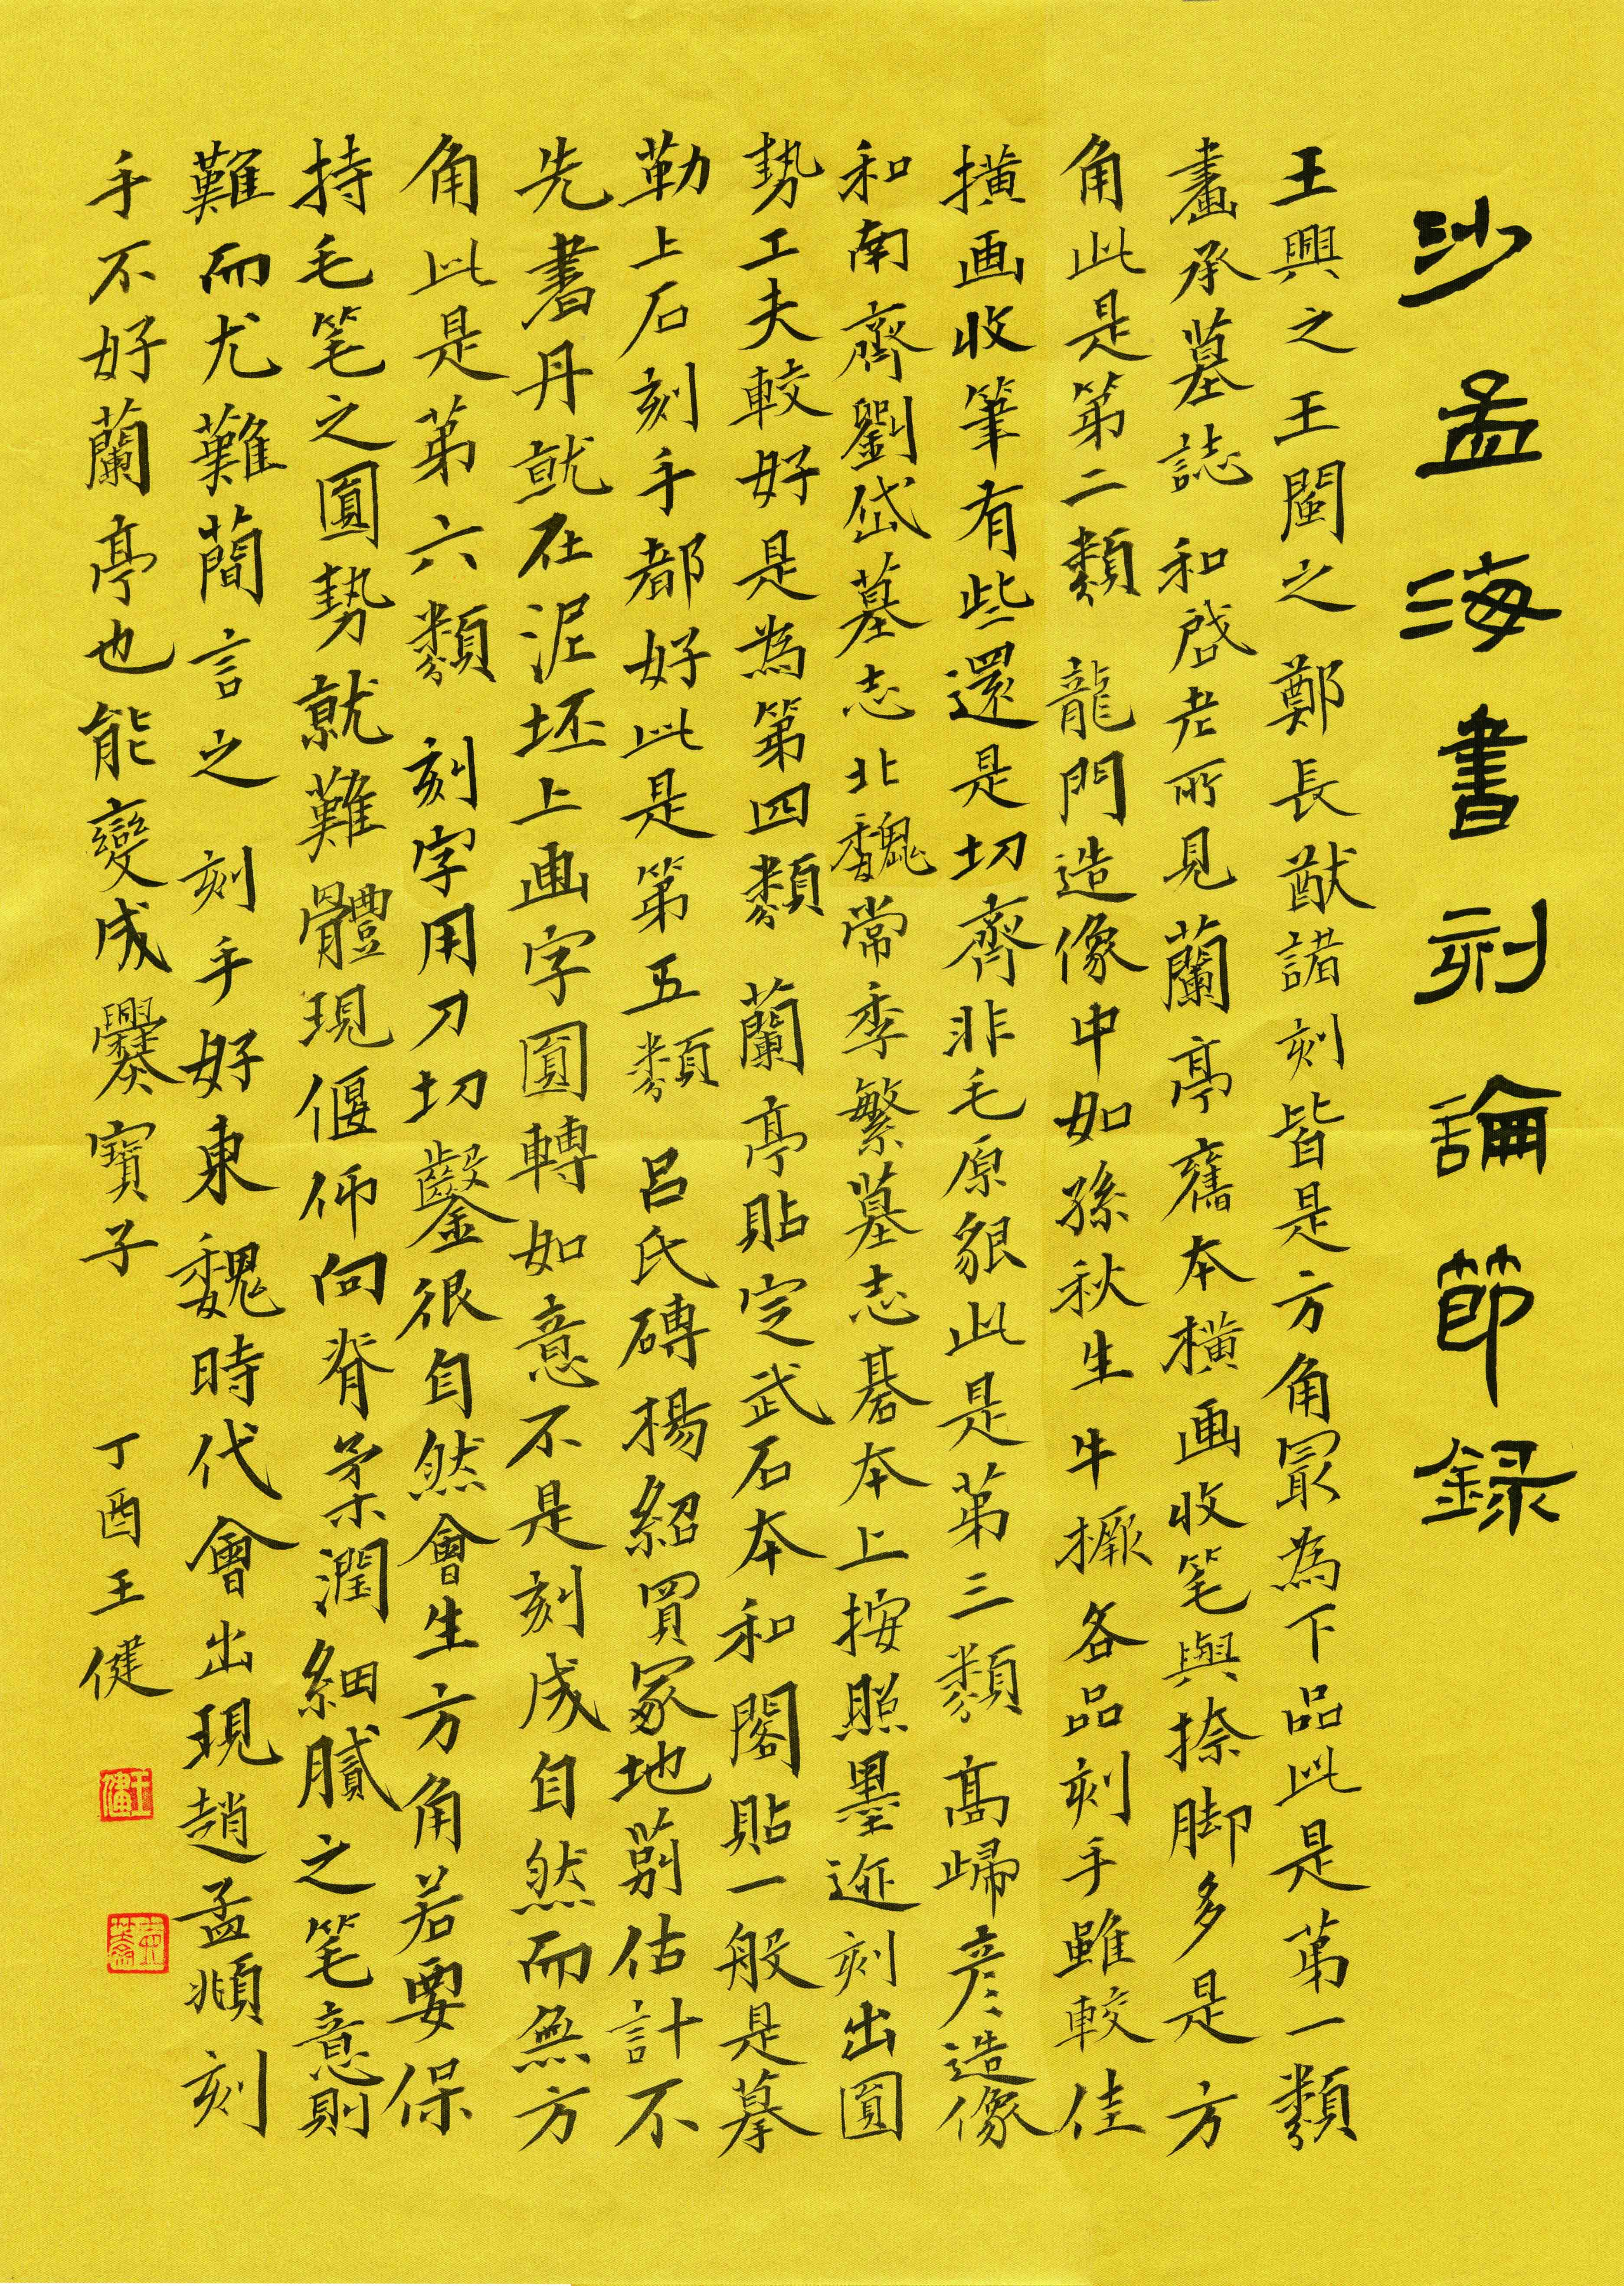 沙孟海書刻論節録
王興之王閩之鄭長猷諸刻皆是方角冣為下品此是第一類
畫承墓誌和啓老所見蘭亭舊本橫画收笔與捺脚多是方
角此是第二類龍門造像中如孫秋生牛橛各品刻手雖較佳
横画收筆有些還是切齊非毛原貌此是第三類高歸彦造像
和南齊劉岱墓志北魏常季繁墓志碁本上按照墨迹刻出圓
勢工夫較好是為第四類蘭亭貼定武石本和閣貼一般是摹
勒上石刻手都好此是第五類吕氏磚楊紹買冢地莂估計不
先書丹就在泥坯上画字圓轉如意不是刻成自然而無方
角此是第六類刻字用刀切鑿很自然會生方角若要保
持毛笔之圓勢就難體現偃仰向脊柔潤細膩之笔意則
難而尤難蕑言之刻手好東魏時代會出現趙孟頫刻
手不好蘭亭也能變成爨寶子
丁酉王健
王健